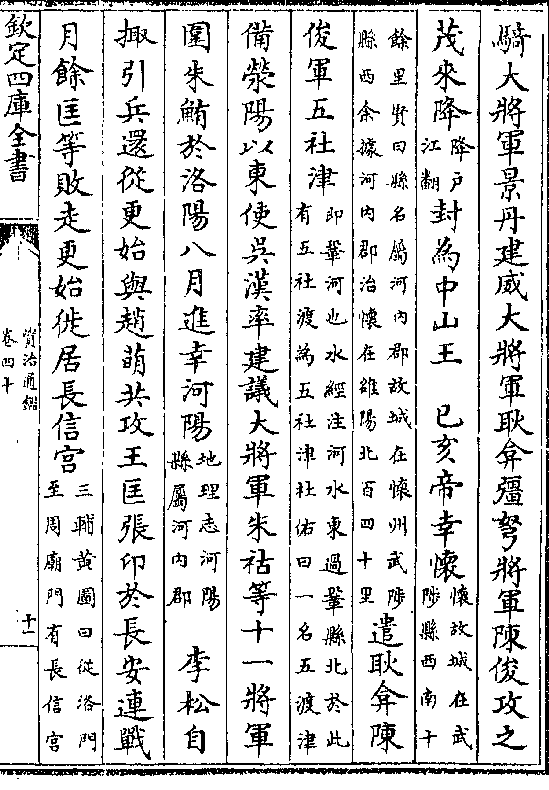 騎大將軍景丹建威大將軍耿弇彊弩將軍陳俊攻之
茂來降降户江翻封為中山王　已亥帝幸懷懷故城在武陟縣西南十
餘里賢曰縣名屬河内郡故城在懷州武陟縣西余據河内郡治懷在雒陽北百四十里遣耿弇陳
俊軍五社津即鞏河也水經注河水東過鞏縣北於此有五社渡為五社津杜佑曰一名五渡津
備滎陽以東使吳漢率建議大將軍朱祜等十一將軍
圍朱鮪於洛陽八月進幸河陽地理志河陽縣屬河内郡　李松自
掫引兵還從更始與趙萌共攻王匡張卬於長安連戰
月餘匡等敗走更始徙居長信宮三輔黄圖曰從洛門至周廟門有長信宮
欽定四庫全書
資治通鑑
卷四十
十一